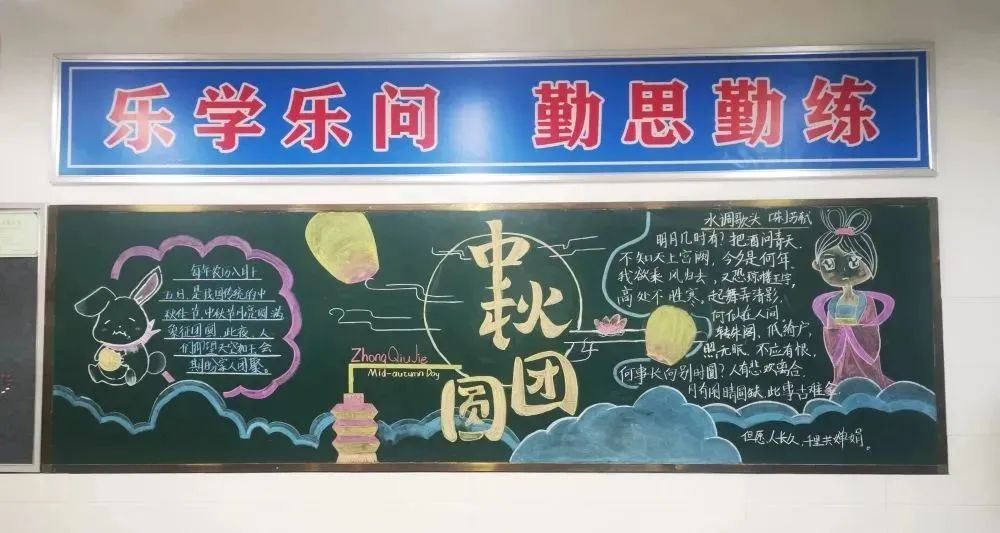 乐学乐问 勤思勤练
每年农历八月十
五日,是我国传统的中
秋佳节,中秋节中
象征团圆,此夜,人
们仰望天空
期盼家人团聚。
中秋
团圆
ZhongQiuJie
Mid-autumn Day
水调歌头 [宋]苏轼
明月几时有?把酒问青天.
不知天上宫阙,今夕是何年.
我欲乘风归去,又恐琼楼玉宇,
高处不胜寒,起舞弄清影,
何似在人间
转朱阁,低绮户,
照无眠,不应有恨,
何事长向别时圆?人有悲欢离合,
月有阴晴圆缺,此事古难全.
但愿人长久,千里共婵娟。